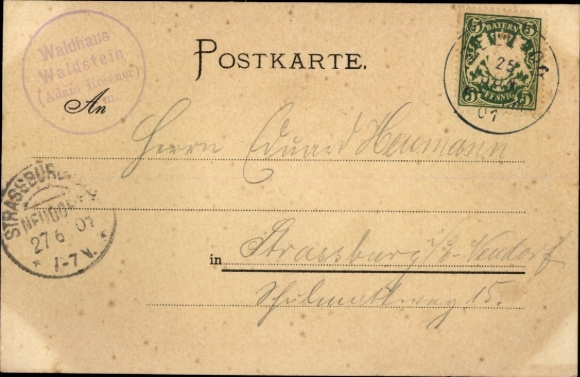 Waldhaus
Waldstein
POSTKARTE.
5 BAYERN 5
5 PFENNIG 5
25
07
An
Herrn Eduard Heumann
STRASSBURG
NEUDORF
27 6 07
* 1-7 V. *
in Strassburg i/E-Neudorf
15.